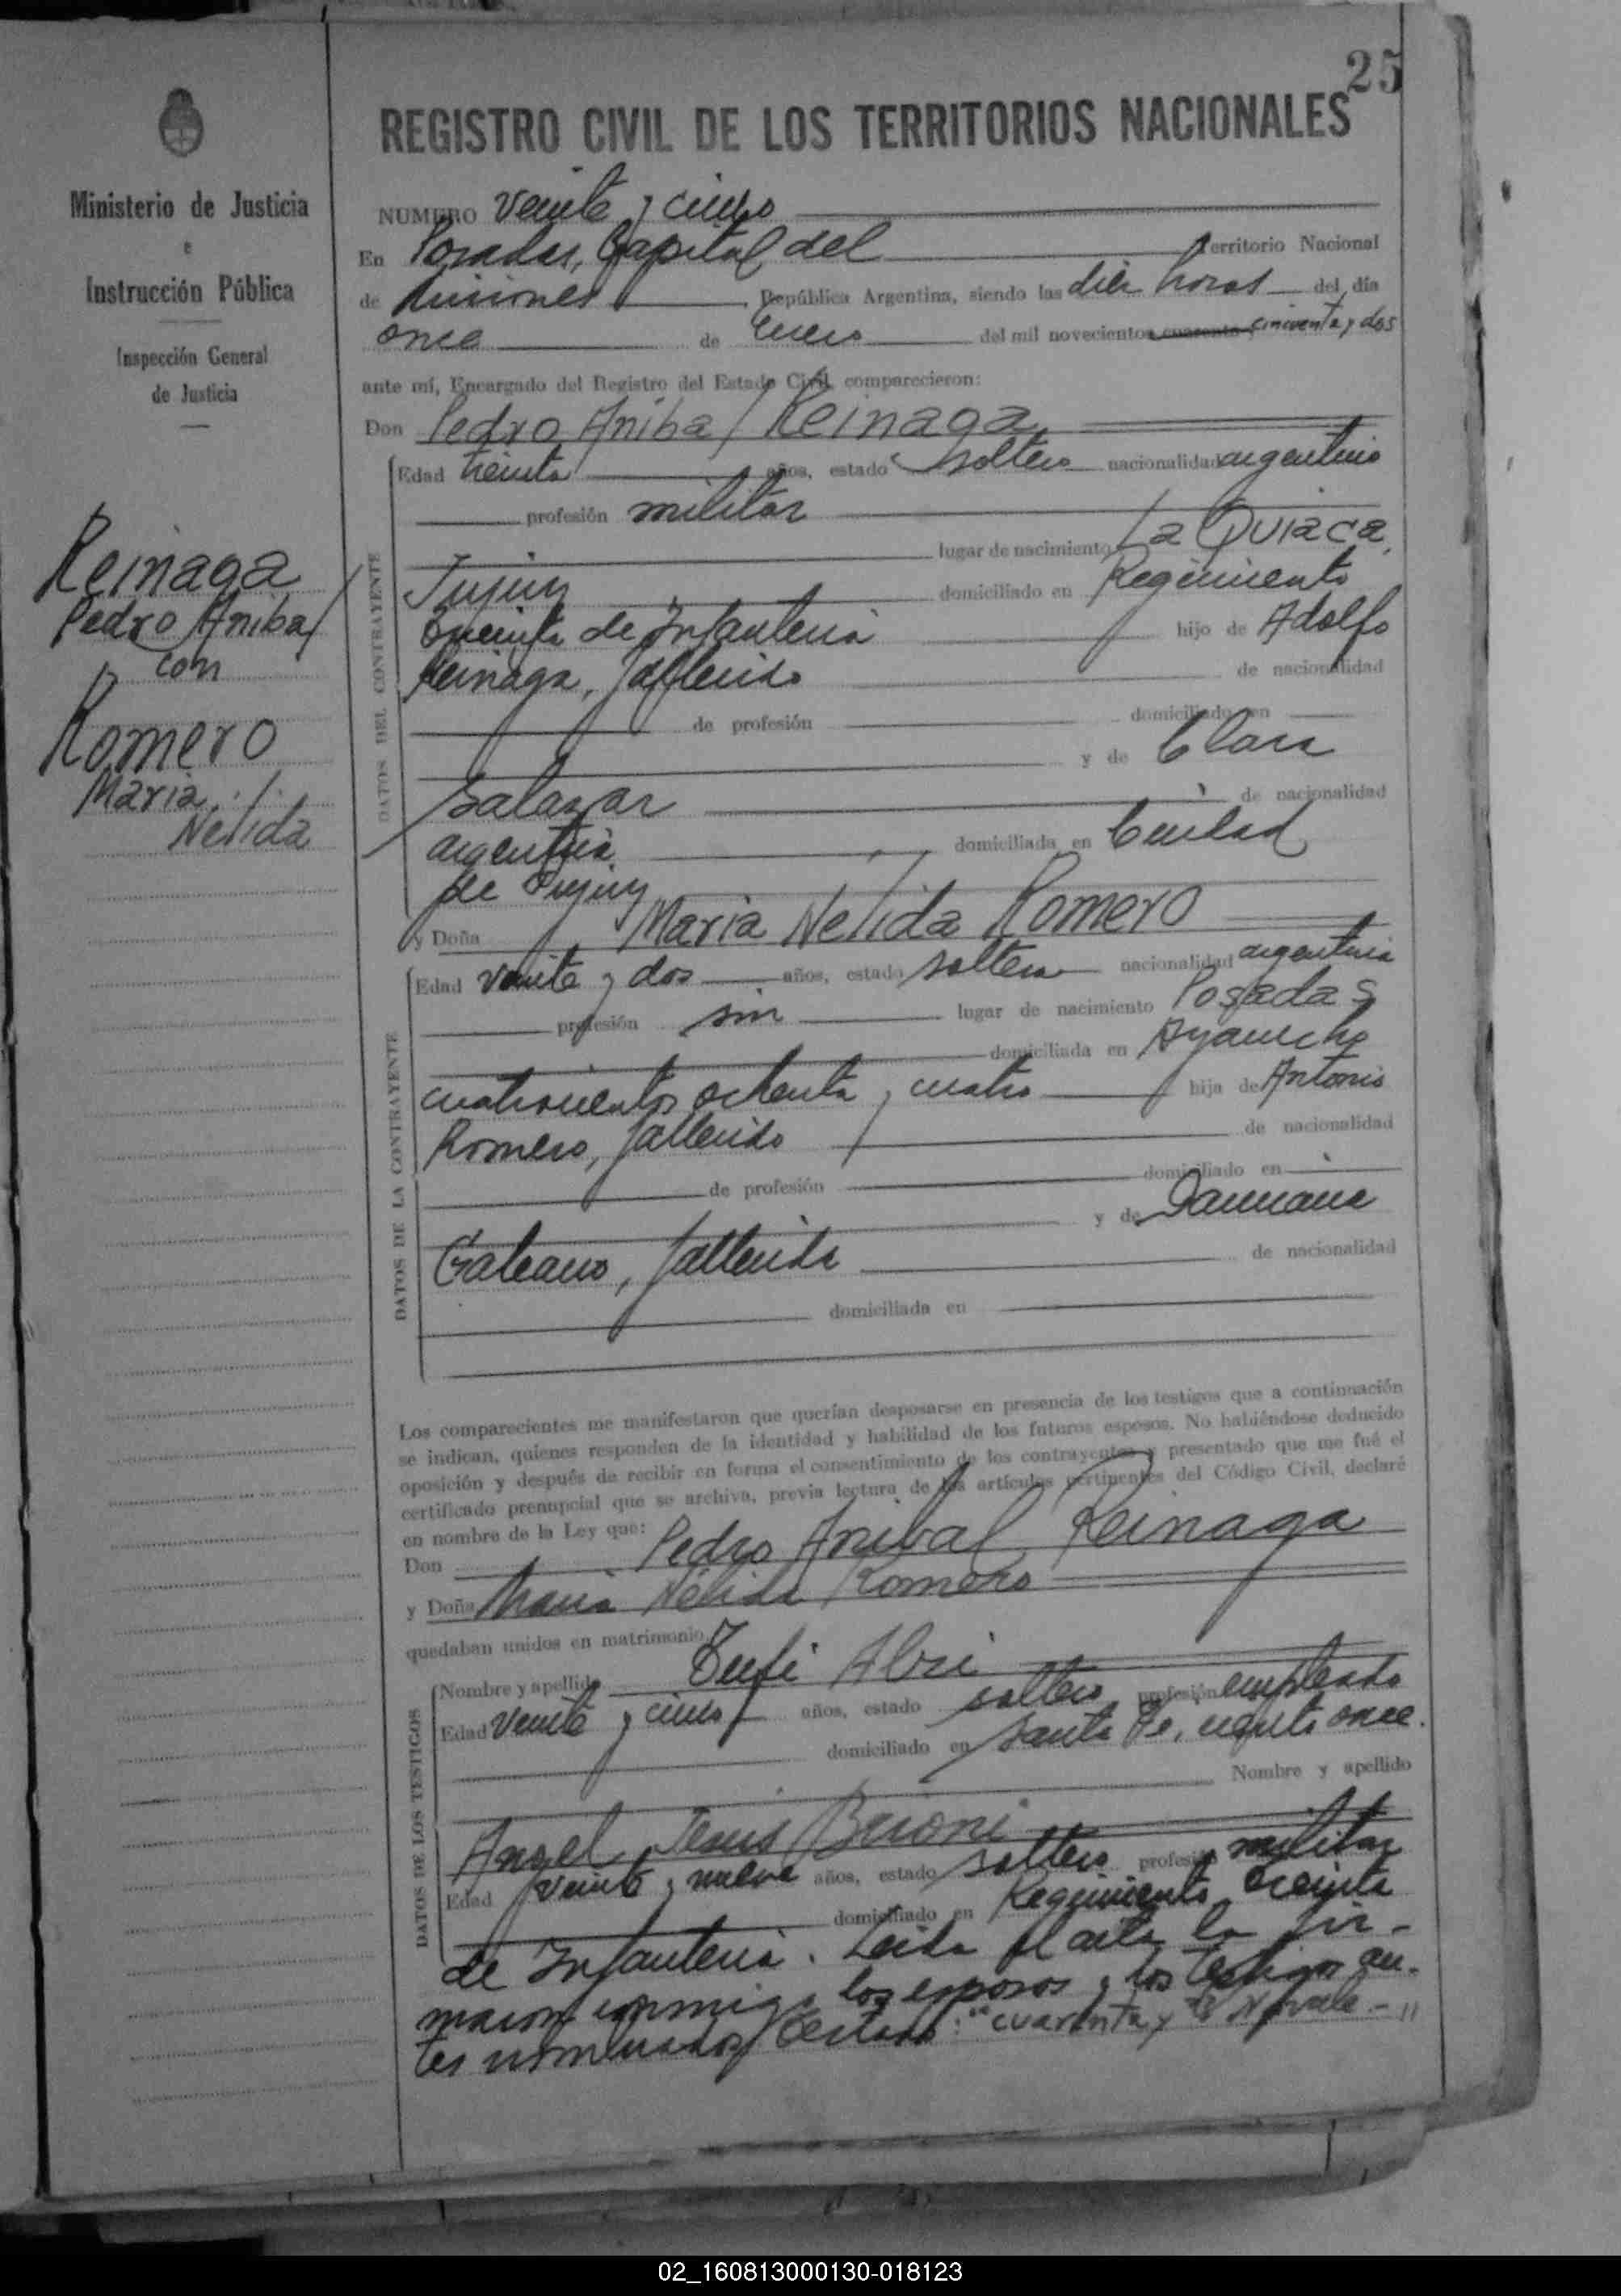 25
REGISTRO CIVIL DE LOS TERRITORIOS NACIONALES
Ministerio de Justicia
e
Instrucción Pública
Inspección General
de Justicia
Reinaga
Pedro Anibal
con
Romero
Maria
Nelida
NUMERO veinte y cinco
En Posadas, Capital del Territorio Nacional
de Misiones República Argentina, siendo las diez horas del día
once de Enero del mil novecientos cuarenta y cincuenta y dos
ante mí, Encargado del Registro del Estado Civil, comparecieron:
Don Pedro Anibal Reinaga
DATOS DEL CONTRAYENTE
Edad treinta años, estado soltero nacionalidad argentino
profesión militar
lugar de nacimiento La Quiaca,
Jujuy domiciliado en Regimiento
treinta de Infanteria hijo de Adolfo
Reinaga, fallecido de nacionalidad
de profesión domiciliado en
y de Clara
Salazar de nacionalidad
argentina domiciliada en Ciudad
de Jujuy
y Doña Maria Nelida Romero
DATOS DE LA CONTRAYENTE
Edad veinte y dos años, estado soltera nacionalidad argentina
profesión sin lugar de nacimiento Posadas
domiciliada en Ayacucho
cuatrocientos ochenta y cuatro hija de Antonio
Romero, fallecido de nacionalidad
de profesión domiciliado en
y de Damiana
Galeano, fallecida de nacionalidad
domiciliada en
Los comparecientes me manifestaron que querían desposarse en presencia de los testigos que a continuación
se indican, quienes responden de la identidad y habilidad de los futuros esposos. No habiéndose deducido
oposición y después de recibir en forma el consentimiento de los contrayentes y presentado que me fué el
certificado prenupcial que se archiva, previa lectura de los artículos pertinentes del Código Civil, declaré
en nombre de la Ley que:
Don Pedro Anibal Reinaga
y Doña Maria Nélida Romero
quedaban unidos en matrimonio
DATOS DE LOS TESTIGOS
Nombre y apellido
Edad veinte y cinco años, estado soltero profesión empleado
domiciliado en Santa Fe, ciento once.
Nombre y apellido
Angel Jesus Brioni
Edad veinte y nueve años, estado soltero profesión militar
domiciliado en Regimiento treinta
de Infanteria. Leida el acta la fir-
maron conmigo los esposos y los testigos an-
tes nombrados Testado: "cuarenta y" No vale-
02_160813000130-018123